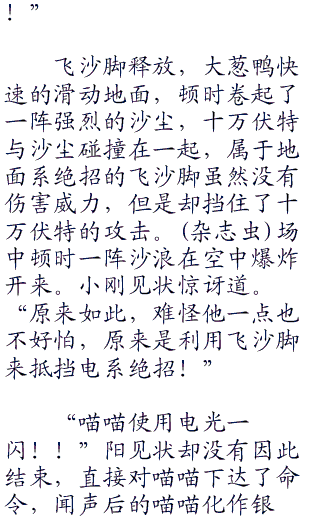 ！”
飞沙脚释放，大葱鸭快
速的滑动地面，顿时卷起了
一阵强烈的沙尘，十万伏特
与沙尘碰撞在一起，属于地
面系绝招的飞沙脚虽然没有
伤害威力，但是却挡住了十
万伏特的攻击。(杂志虫)场
中顿时一阵沙浪在空中爆炸
开来。小刚见状惊讶道。
“原来如此，难怪他一点也
不好怕，原来是利用飞沙脚
来抵挡电系绝招！”
“喵喵使用电光一
闪！！”阳见状却没有因此
结束，直接对喵喵下达了命
令，闻声后的喵喵化作银